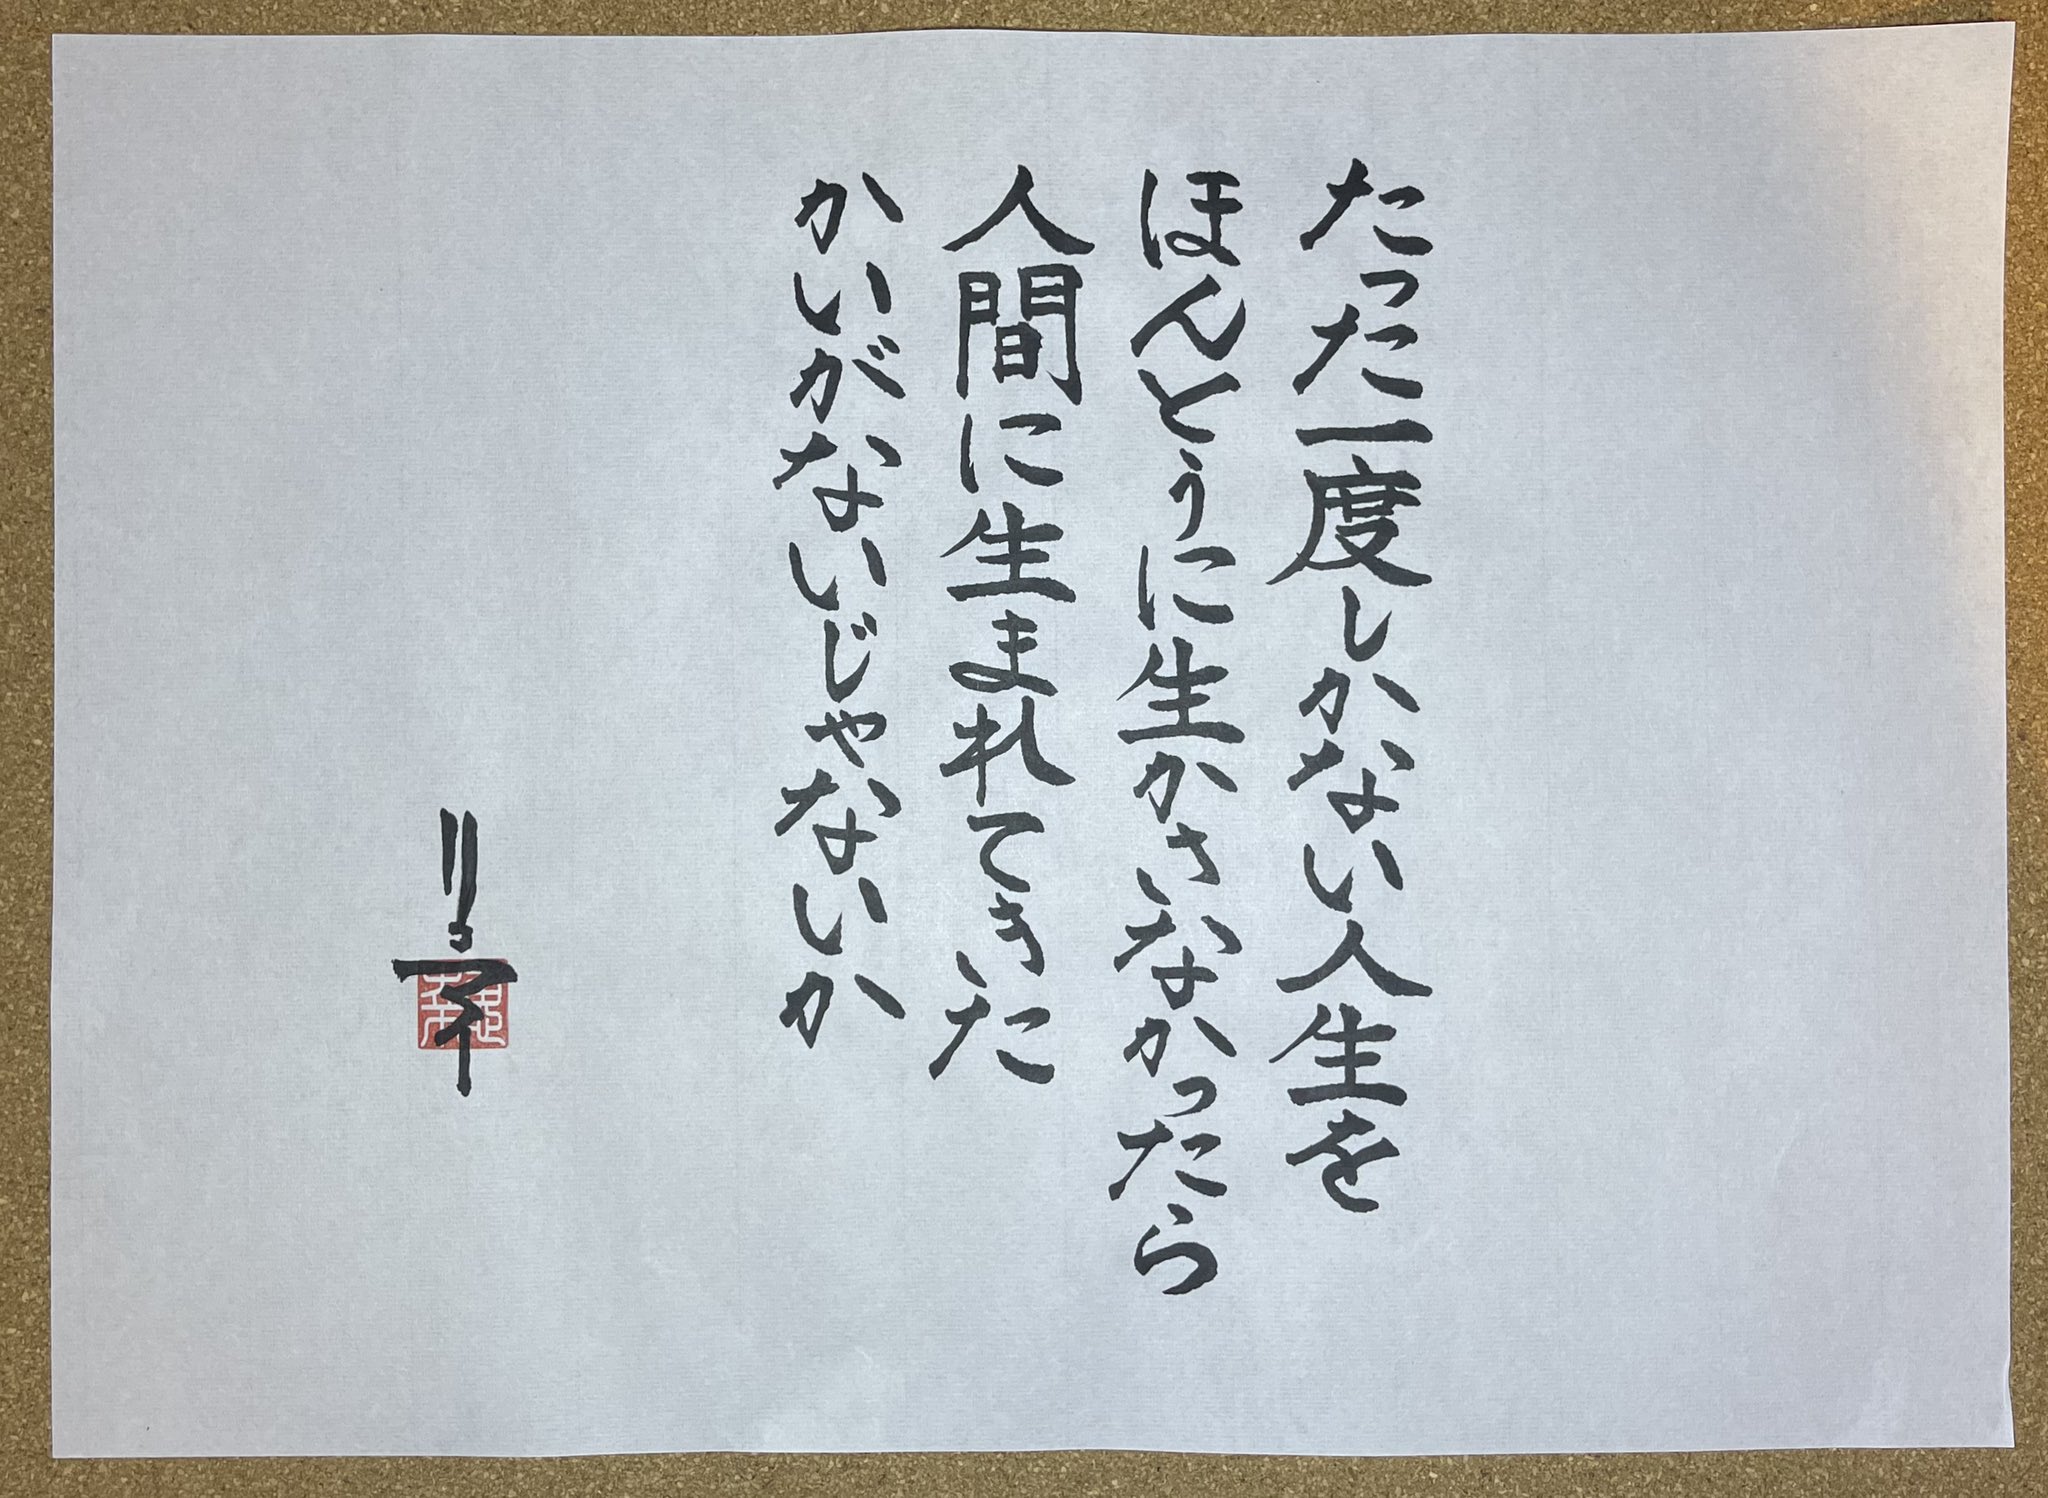 たった一度しかない人生を
ほんとうに生かさなかったら
人間に生まれてきた
かいがないじゃないか